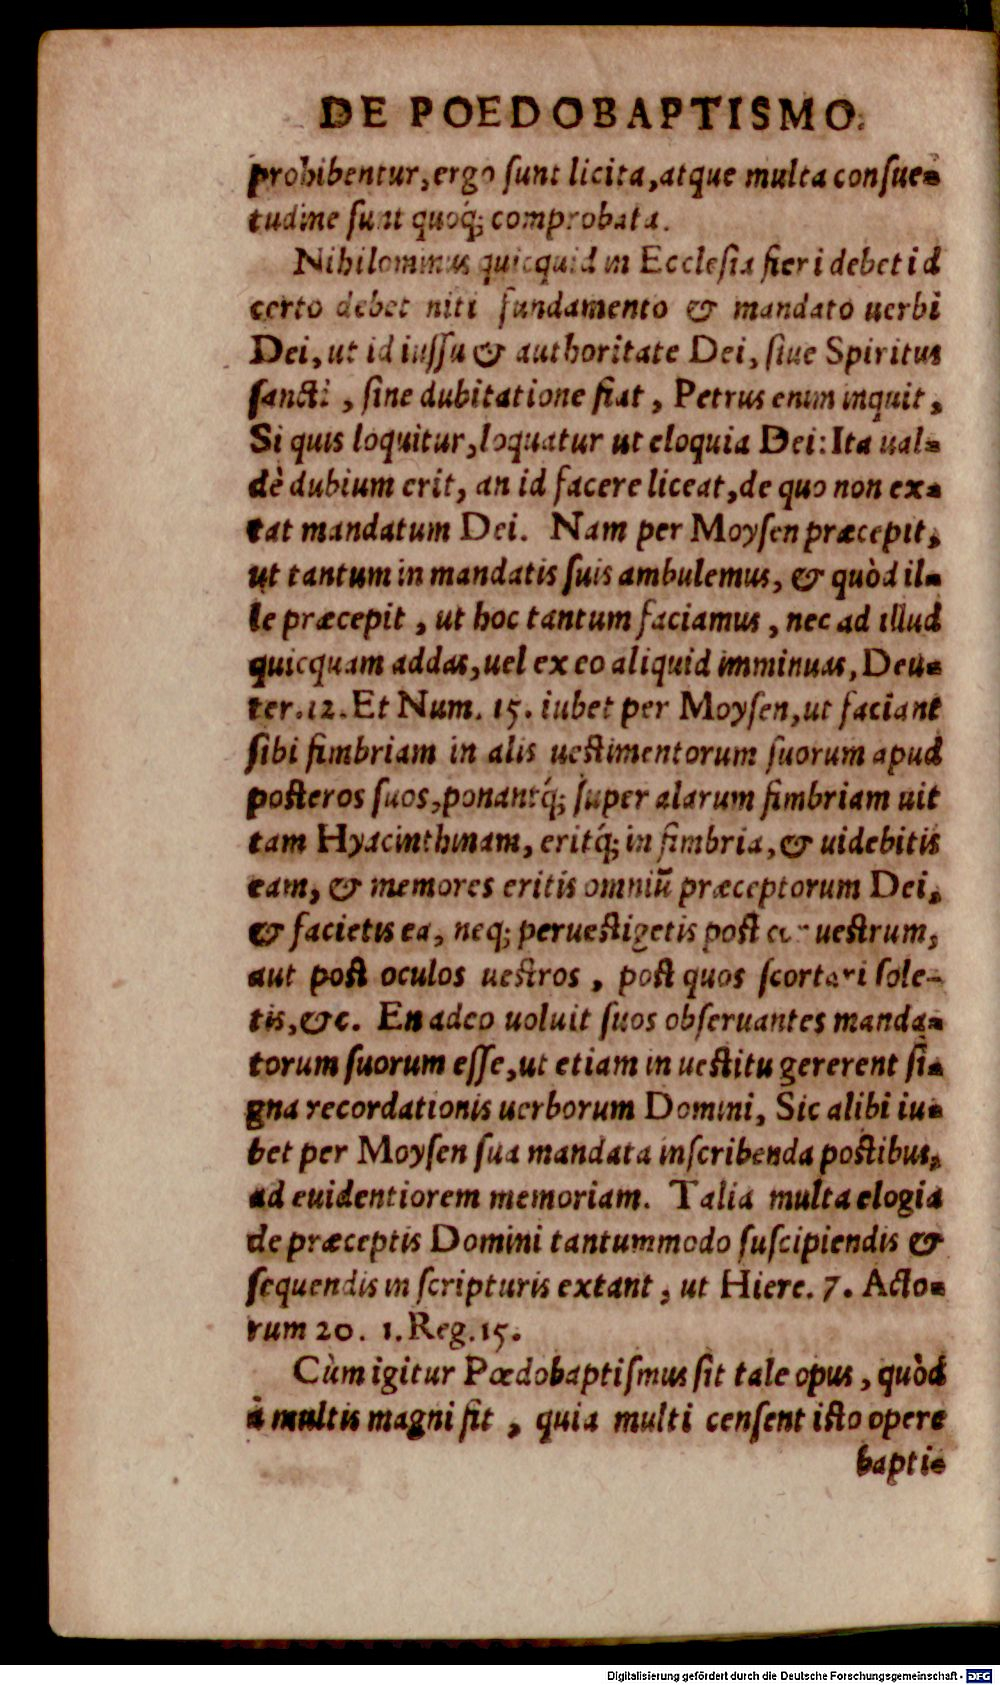 DE POEDOBAPTISMO.
prohibentur, ergo sunt licita, atque multa consue-
tudine sunt quoq́; comprobata.
Nihilominus quicquid in Ecclesia fieri debet id
certo debet niti fundamento & mandato uerbi
Dei, ut id iussu & authoritate Dei, siue Spiritus
sancti, sine dubitatione fiat, Petrus enim inquit,
Si quis loquitur, loquatur ut eloquia Dei: Ita ual-
dè dubium erit, an id facere liceat, de quo non ex-
tat mandatum Dei. Nam per Moysen præcepit,
ut tantum in mandatis suis ambulemus, & quòd il-
le præcepit, ut hoc tantum faciamus, nec ad illud
quicquam addas, uel ex eo aliquid imminuas, Deu-
ter. 12. Et Num. 15. iubet per Moysen, ut faciant
sibi fimbriam in alis uestimentorum suorum apud
posteros suos, ponantq́; super alarum fimbriam uit
tam Hyacinthinam, eritq́; in fimbria, & uidebitis
eam, & memores eritis omniũ præceptorum Dei,
& facietis ea, neq; peruestigetis post cor uestrum,
aut post oculos uestros, post quos scortari sole-
tis, &c. En adeo uoluit suos obseruantes manda-
torum suorum esse, ut etiam in uestitu gererent si-
gna recordationis uerborum Domini, Sic alibi iu-
bet per Moysen sua mandata inscribenda postibus,
ad euidentiorem memoriam. Talia multa elogia
de præceptis Domini tantummodo suscipiendis &
sequendis in scripturis extant, ut Hiere. 7. Acto-
rum 20. 1. Reg. 15.
Cùm igitur Pœdobaptismus sit tale opus, quòd
à multis magni fit, quia multi censent isto opere
bapti-
Digitalisierung gefördert durch die Deutsche Forschungsgemeinschaft - DFG